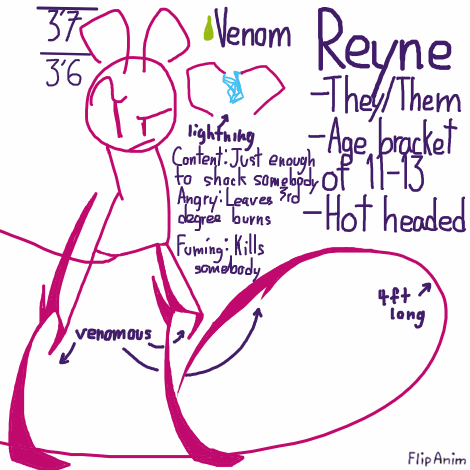 3'7
3'6
Venom
Reyne
-They/Them
-Age bracket
of 11-13
-Hot headed
lightning
Content: Just enough
to shock somebody
Angry: Leaves 3rd
degree burns
Fuming: Kills
somebody
venomous
4ft
long
FlipAnim